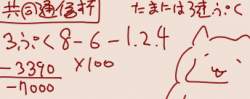 共同通信杯
たまには3連ぷく
3ぷく8-6-1.2.4
×100
-3390
-7000